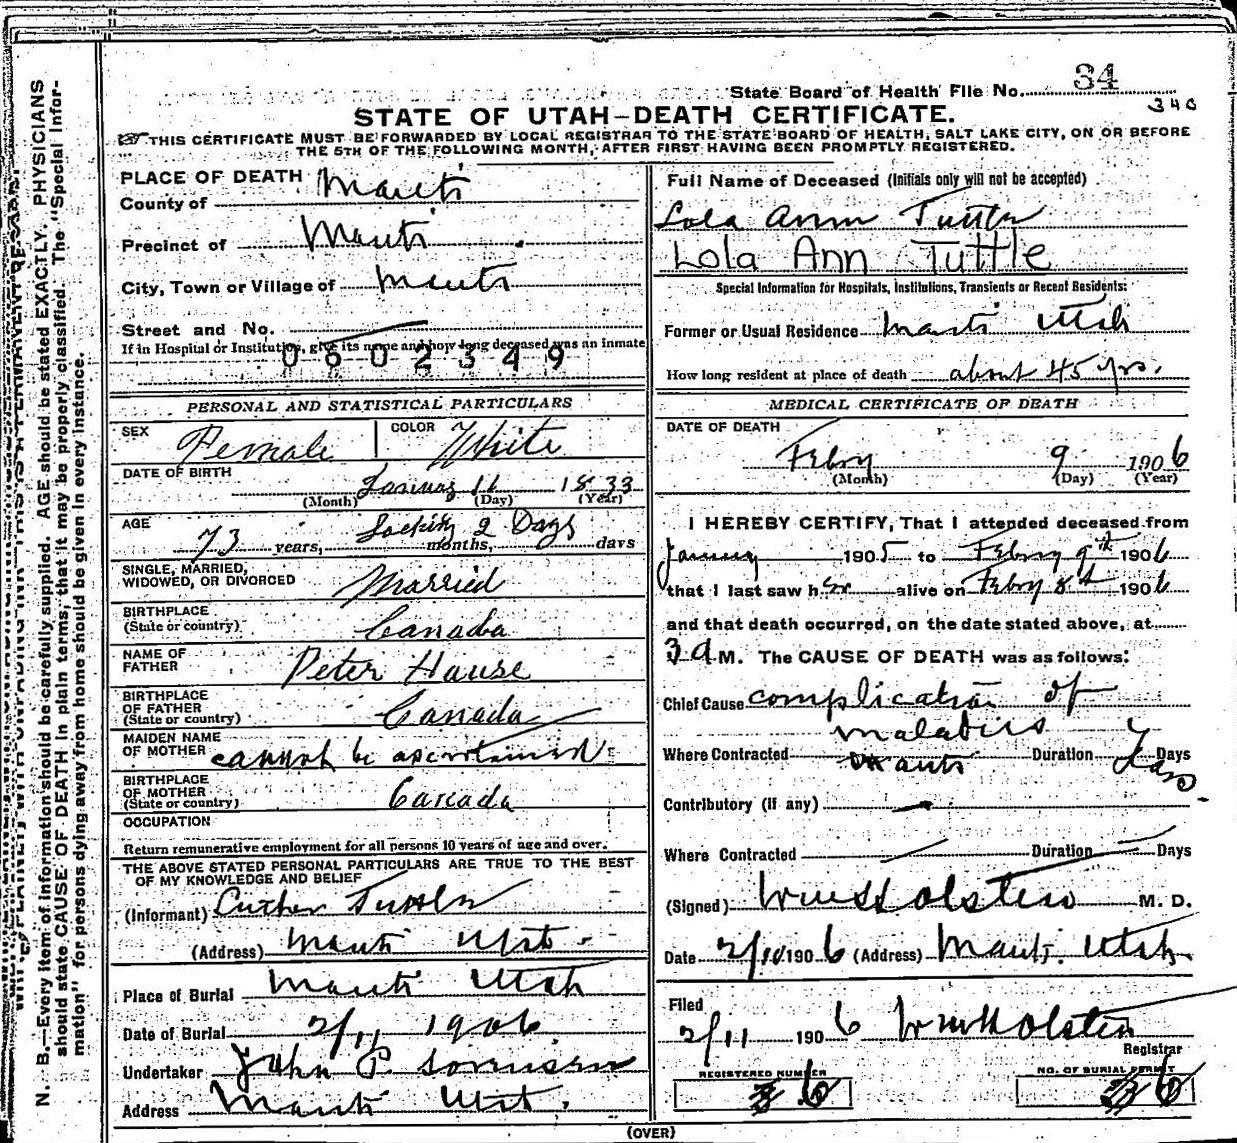 State Board of Health File No. 34
340
STATE OF UTAH—DEATH CERTIFICATE.
THIS CERTIFICATE MUST BE FORWARDED BY LOCAL REGISTRAR TO THE STATE BOARD OF HEALTH, SALT LAKE CITY, ON OR BEFORE
THE 5TH OF THE FOLLOWING MONTH, AFTER FIRST HAVING BEEN PROMPTLY REGISTERED.
N. B.—Every item of information should be carefully supplied. AGE should be stated EXACTLY. PHYSICIANS
should state CAUSE OF DEATH in plain terms, that it may be properly classified. The "Special Infor-
mation" for persons dying away from home should be given in every instance.
PLACE OF DEATH
County of Manti
Precinct of Manti
City, Town or Village of Manti
Street and No.
If in Hospital or Institution, give its name and how long deceased was an inmate
0602349
PERSONAL AND STATISTICAL PARTICULARS
SEX Female COLOR White
DATE OF BIRTH
January 11 1833
(Month) (Day) (Year)
AGE
73 years, Lacking 2 Days months, days
SINGLE, MARRIED,
WIDOWED, OR DIVORCED Married
BIRTHPLACE
(State or country) Canada
NAME OF
FATHER Peter Hause
BIRTHPLACE
OF FATHER
(State or country) Canada
MAIDEN NAME
OF MOTHER cannot be ascertained
BIRTHPLACE
OF MOTHER
(State or country) Canada
OCCUPATION
Return remunerative employment for all persons 10 years of age and over.
THE ABOVE STATED PERSONAL PARTICULARS ARE TRUE TO THE BEST
OF MY KNOWLEDGE AND BELIEF
(Informant) Luther Tuttle
(Address) Manti Utah
Place of Burial Manti Utah
Date of Burial 2/11 1906
Undertaker John P. Sorensen
Address Manti Utah.
Full Name of Deceased (Initials only will not be accepted)
Lola Ann Tuttle
Lola Ann Tuttle
Special Information for Hospitals, Institutions, Transients or Recent Residents:
Former or Usual Residence Manti Utah
How long resident at place of death about 45 yrs.
MEDICAL CERTIFICATE OF DEATH
DATE OF DEATH
Febry 9 1906
(Month) (Day) (Year)
I HEREBY CERTIFY, That I attended deceased from
January 1905 to Febry 9th 1906
that I last saw her alive on Febry 8th 1906
and that death occurred, on the date stated above, at
3 a M. The CAUSE OF DEATH was as follows:
Chief Cause complication of
maladies
Where Contracted Manti Duration Days
Contributory (if any)
Where Contracted Duration Days
(Signed) Wm H Olsten M. D.
Date 2/10 1906 (Address) Manti. Utah.
Filed
2/11 1906 Wm H Olsten
Registrar
REGISTERED NUMBER NO. OF BURIAL PERMIT
36 36
(OVER)